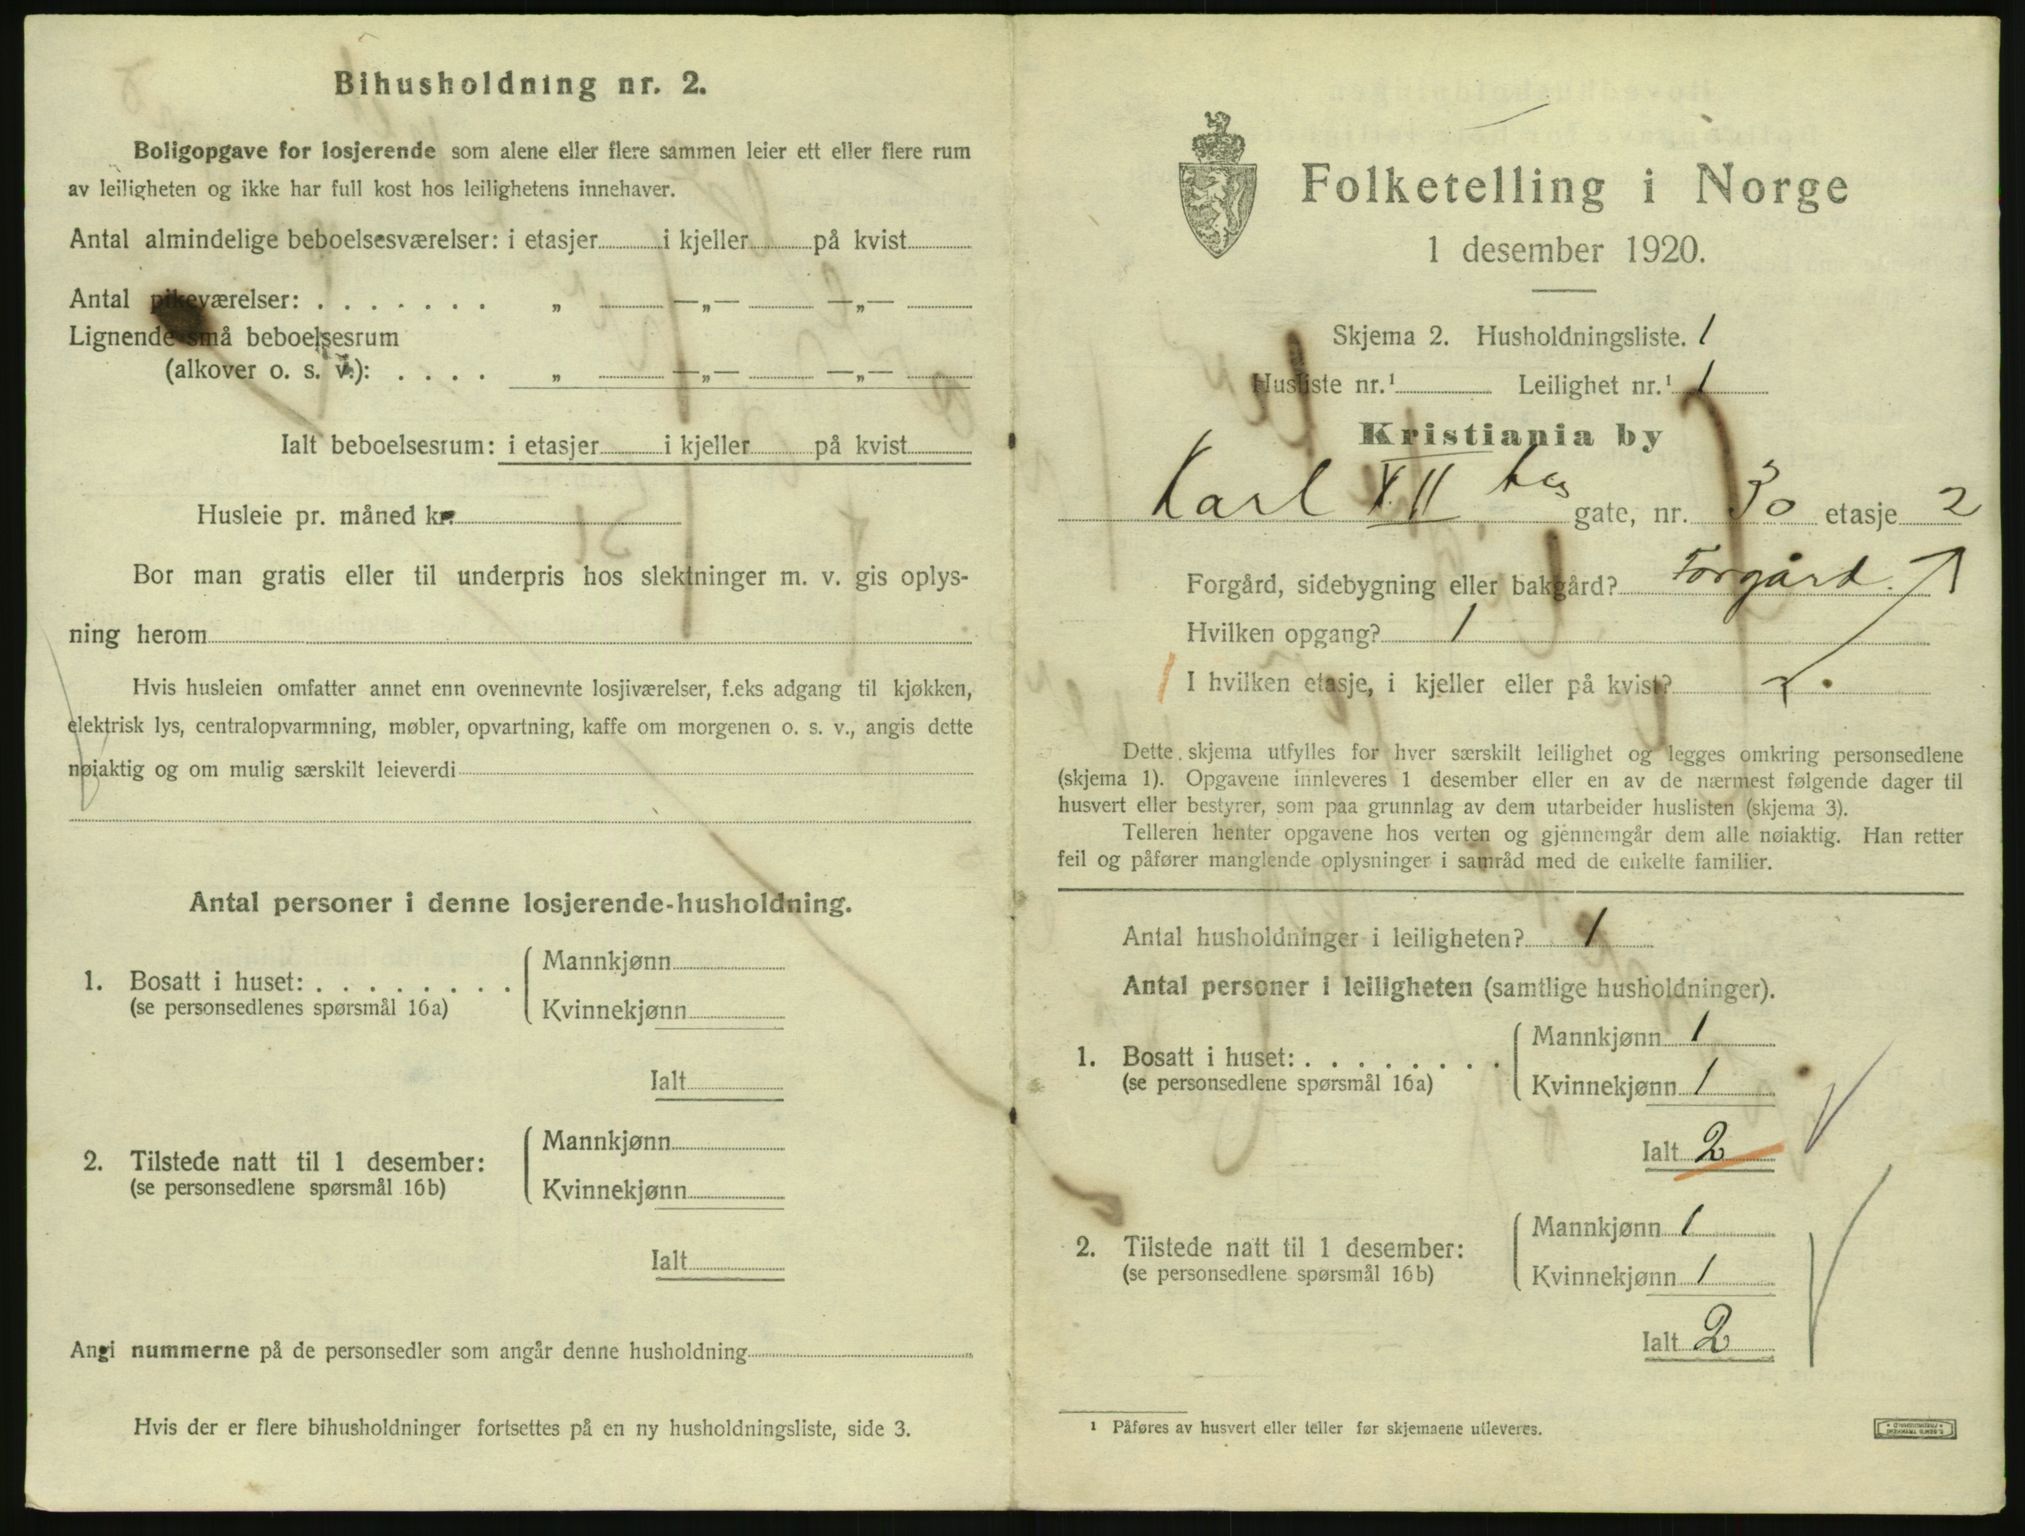 Bihusholdning nr. 2.
Boligopgave for losjerende som alene eller flere sammen leier ett eller flere rum
av leiligheten og ikke har full kost hos leilighetens innehaver.
Antal almindelige beboelsesværelser: i etasjer i kjeller på kvist
Antal pikeværelser: . . . . . . . „ —„— —„—
Lignende små beboelsesrum
(alkover o. s. v.): . . . . „ —„— —„—
Ialt beboelsesrum: i etasjer i kjeller på kvist
Husleie pr. måned kr.
Bor man gratis eller til underpris hos slektninger m. v. gis oplys-
ning herom
Hvis husleien omfatter annet enn ovennevnte losjiværelser, f.eks adgang til kjøkken,
elektrisk lys, centralopvarmning, møbler, opvartning, kaffe om morgenen o. s. v., angis dette
nøiaktig og om mulig særskilt leieverdi
Antal personer i denne losjerende-husholdning.
1. Bosatt i huset: . . . . . . . .
(se personsedlenes spørsmål 16a)
Mannkjønn
Kvinnekjønn
Ialt
2. Tilstede natt til 1 desember:
(se personsedlene spørsmål 16b)
Mannkjønn
Kvinnekjønn
Ialt
Angi nummerne på de personsedler som angår denne husholdning
Hvis der er flere bihusholdninger fortsettes på en ny husholdningsliste, side 3.
Folketelling i Norge
1 desember 1920.
Skjema 2. Husholdningsliste. 1
Husliste nr.¹ Leilighet nr.¹ 1
Kristiania by
Karl XII tes gate, nr. 30 etasje 2
Forgård, sidebygning eller bakgård? Forgård.
Hvilken opgang? 1
1 I hvilken etasje, i kjeller eller på kvist? 2.
Dette skjema utfylles for hver særskilt leilighet og legges omkring personsedlene
(skjema 1). Opgavene innleveres 1 desember eller en av de nærmest følgende dager til
husvert eller bestyrer, som paa grunnlag av dem utarbeider huslisten (skjema 3).
Telleren henter opgavene hos verten og gjennemgår dem alle nøiaktig. Han retter
feil og påfører manglende oplysninger i samråd med de enkelte familier.
Antal husholdninger i leiligheten? 1
Antal personer i leiligheten (samtlige husholdninger).
1. Bosatt i huset: . . . . . . . .
(se personsedlene spørsmål 16a)
Mannkjønn 1
Kvinnekjønn 1
Ialt 2
2. Tilstede natt til 1 desember:
(se personsedlene spørsmål 16b)
Mannkjønn 1
Kvinnekjønn 1
Ialt 2
¹ Påføres av husvert eller teller før skjemaene utleveres.